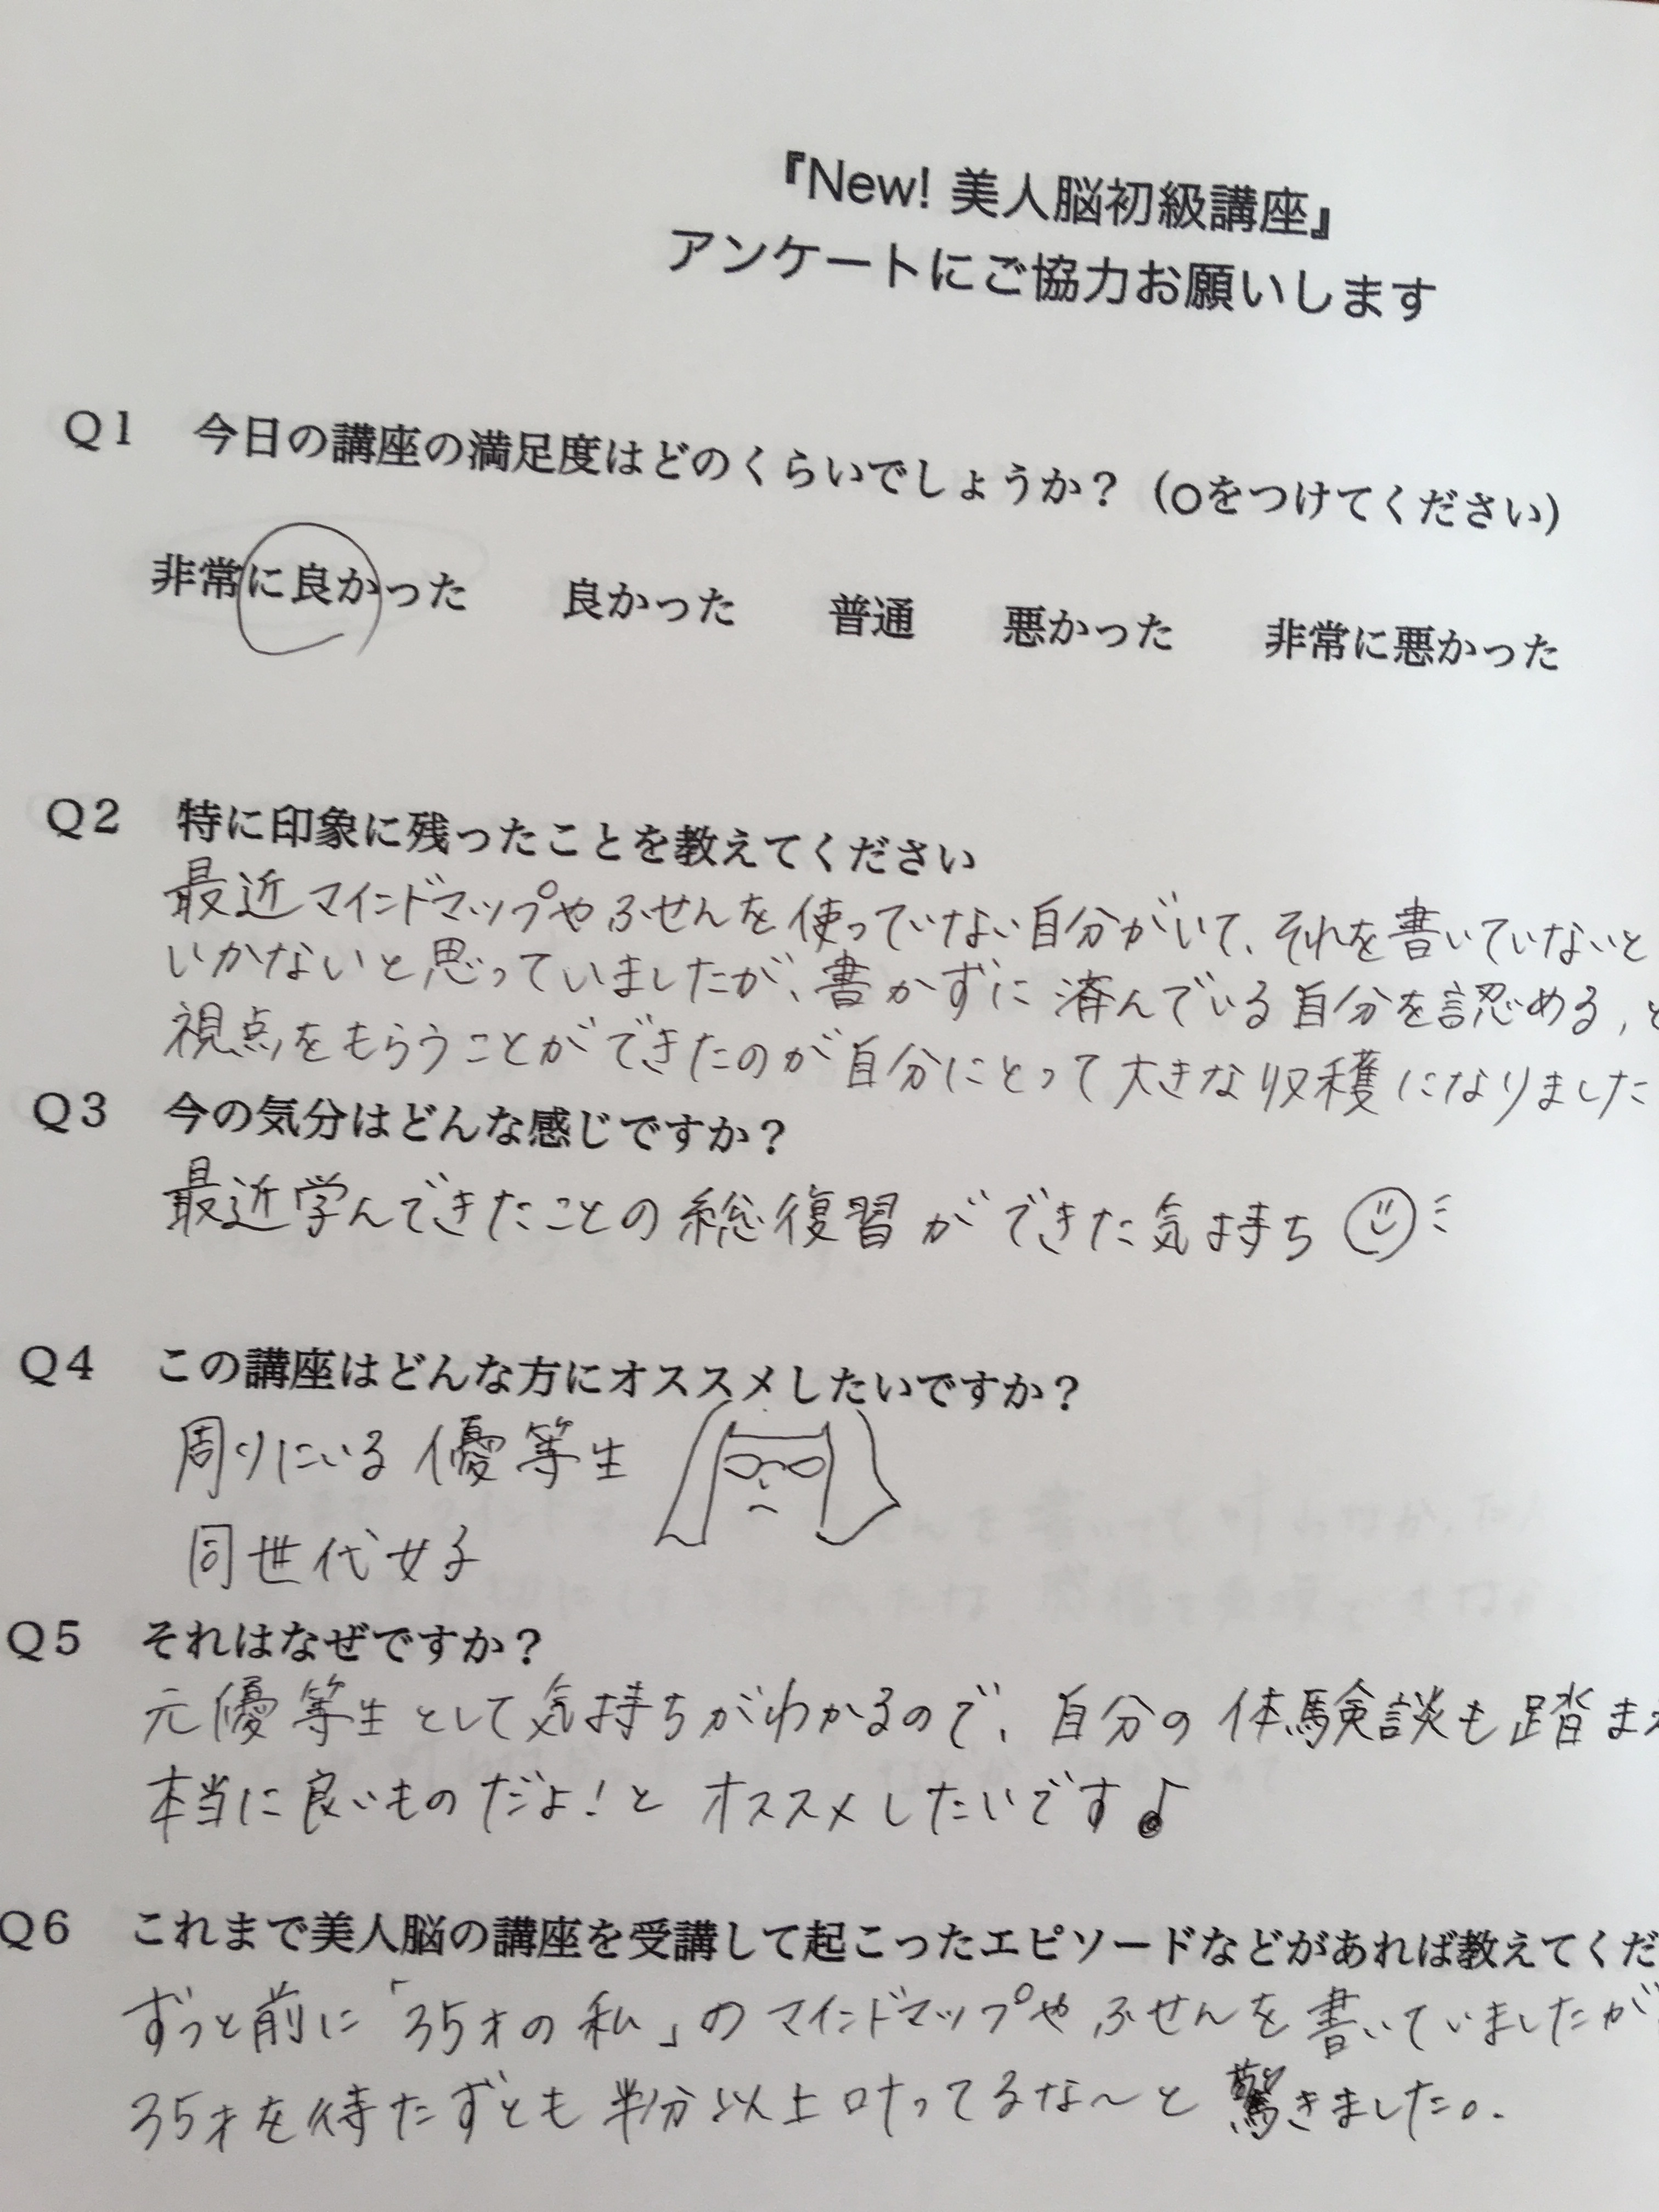 『New! 美人脳初級講座』
アンケートにご協力お願いします
Q1 今日の講座の満足度はどのくらいでしょうか？（○をつけてください）
非常に良かった 良かった 普通 悪かった 非常に悪かった
Q2 特に印象に残ったことを教えてください
最近マインドマップやふせんを使っていない自分がいて、それを書いていないと
いかないと思っていましたが、書かずに済んでいる自分を認める、と
視点をもらうことができたのが自分にとって大きな収穫になりました
Q3 今の気分はどんな感じですか？
最近学んできたことの総復習ができた気持ち
Q4 この講座はどんな方にオススメしたいですか？
周りにいる優等生
同世代女子
Q5 それはなぜですか？
元優等生として気持ちがわかるので、自分の体験談も踏ま
本当に良いものだよ！とオススメしたいです♪
Q6 これまで美人脳の講座を受講して起こったエピソードなどがあれば教えてくだ
ずっと前に「35才の私」のマインドマップやふせんを書いていましたが
35才を待たずとも半分以上叶ってるな〜と驚きました。